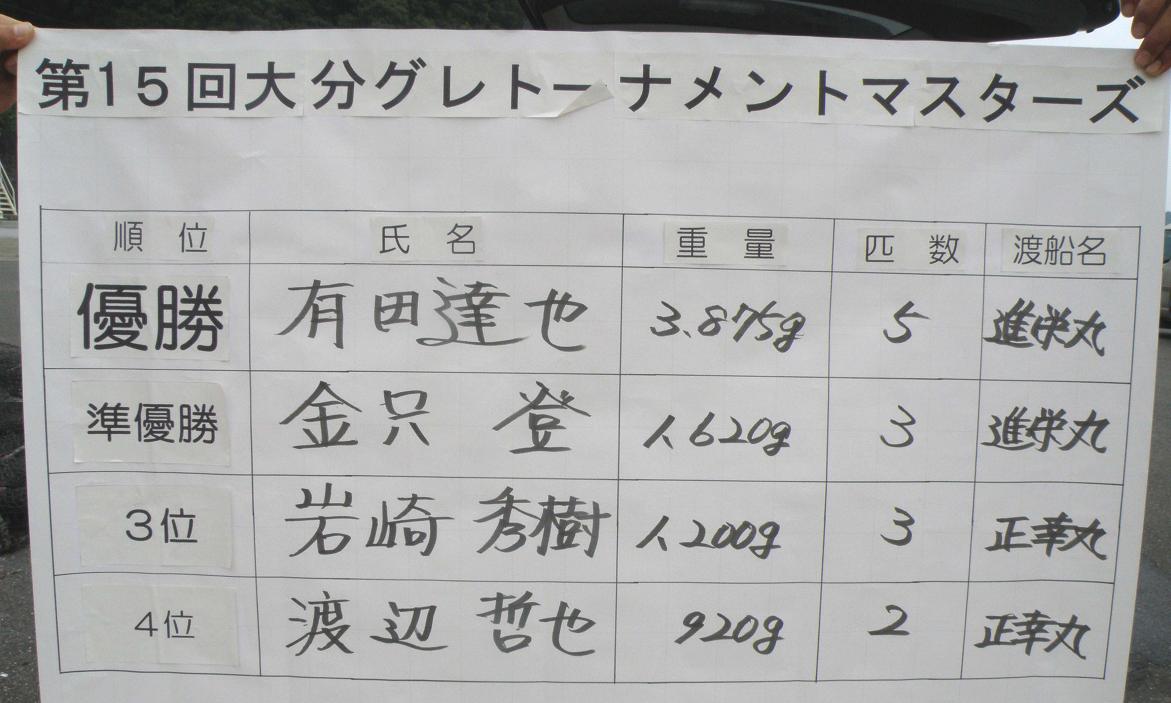 第15回大分グレトーナメントマスターズ
順位 氏名 重量 匹数 渡船名
優勝 有田達也 3.875g 5 進栄丸
準優勝 金只 登 1.620g 3 進栄丸
3位 岩崎 秀樹 1.200g 3 正幸丸
4位 渡辺 哲也 920g 2 正幸丸